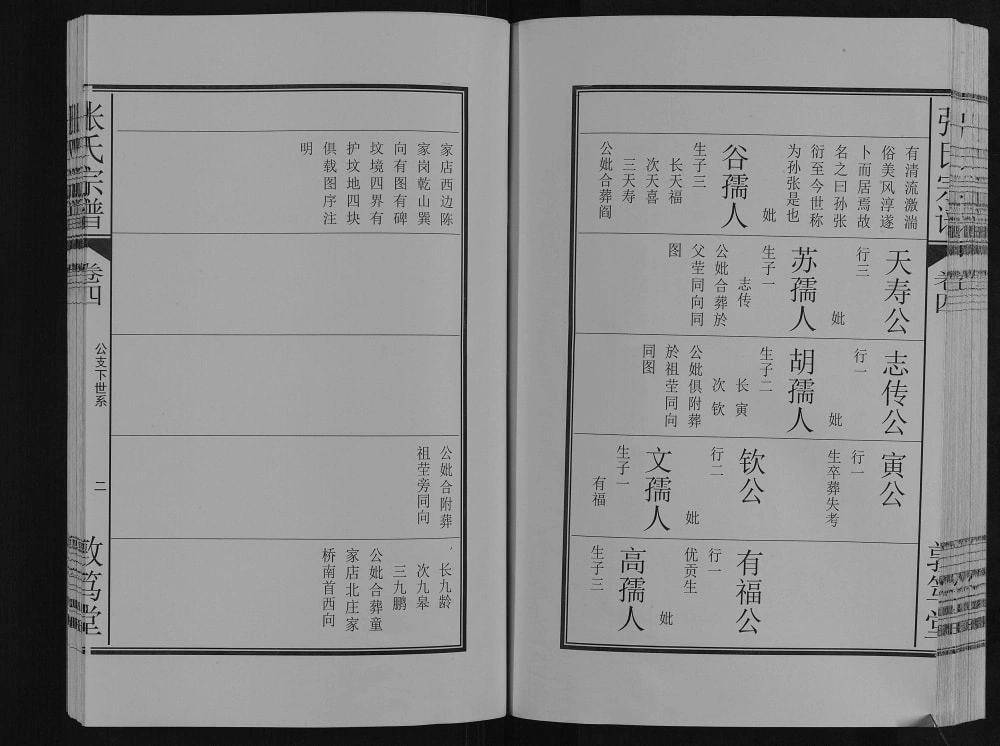 有清流激湍
俗美风淳遂
卜而居焉故
名之曰孙张
衍至今世称
为孙张是也
妣
谷孺人
生子三
长天福
次天喜
三天寿
公妣合葬阎
天寿公
行三
妣
苏孺人
生子一
志传
公妣合葬於
父茔同向同
图
志传公
行一
妣
胡孺人
生子二
长寅
次钦
公妣俱附葬
於祖茔同向
同图
寅公
行一
生卒葬失考
钦公
行二
妣
文孺人
生子一
有福
有福公
行一
优贡生
妣
高孺人
生子三
家店西边陈
家岗乾山巽
向有图有碑
坟境四界有
护坟地四块
俱载图序注
明
公妣合附葬
祖茔旁同向
长九龄
次九皋
三九鹏
公妣合葬童
家店北庄家
桥南首西向
张氏宗谱
卷四
公支下世系
二
敦笃堂